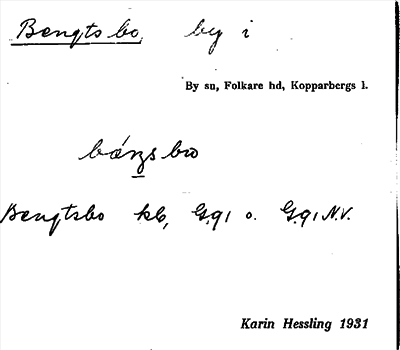 Bengtsbo, by i
By sn, Folkare hd, Kopparbergs l.
bo
Bengtsbo kb, G.91 o. G.91 N.V.
Karin Hessling 1931